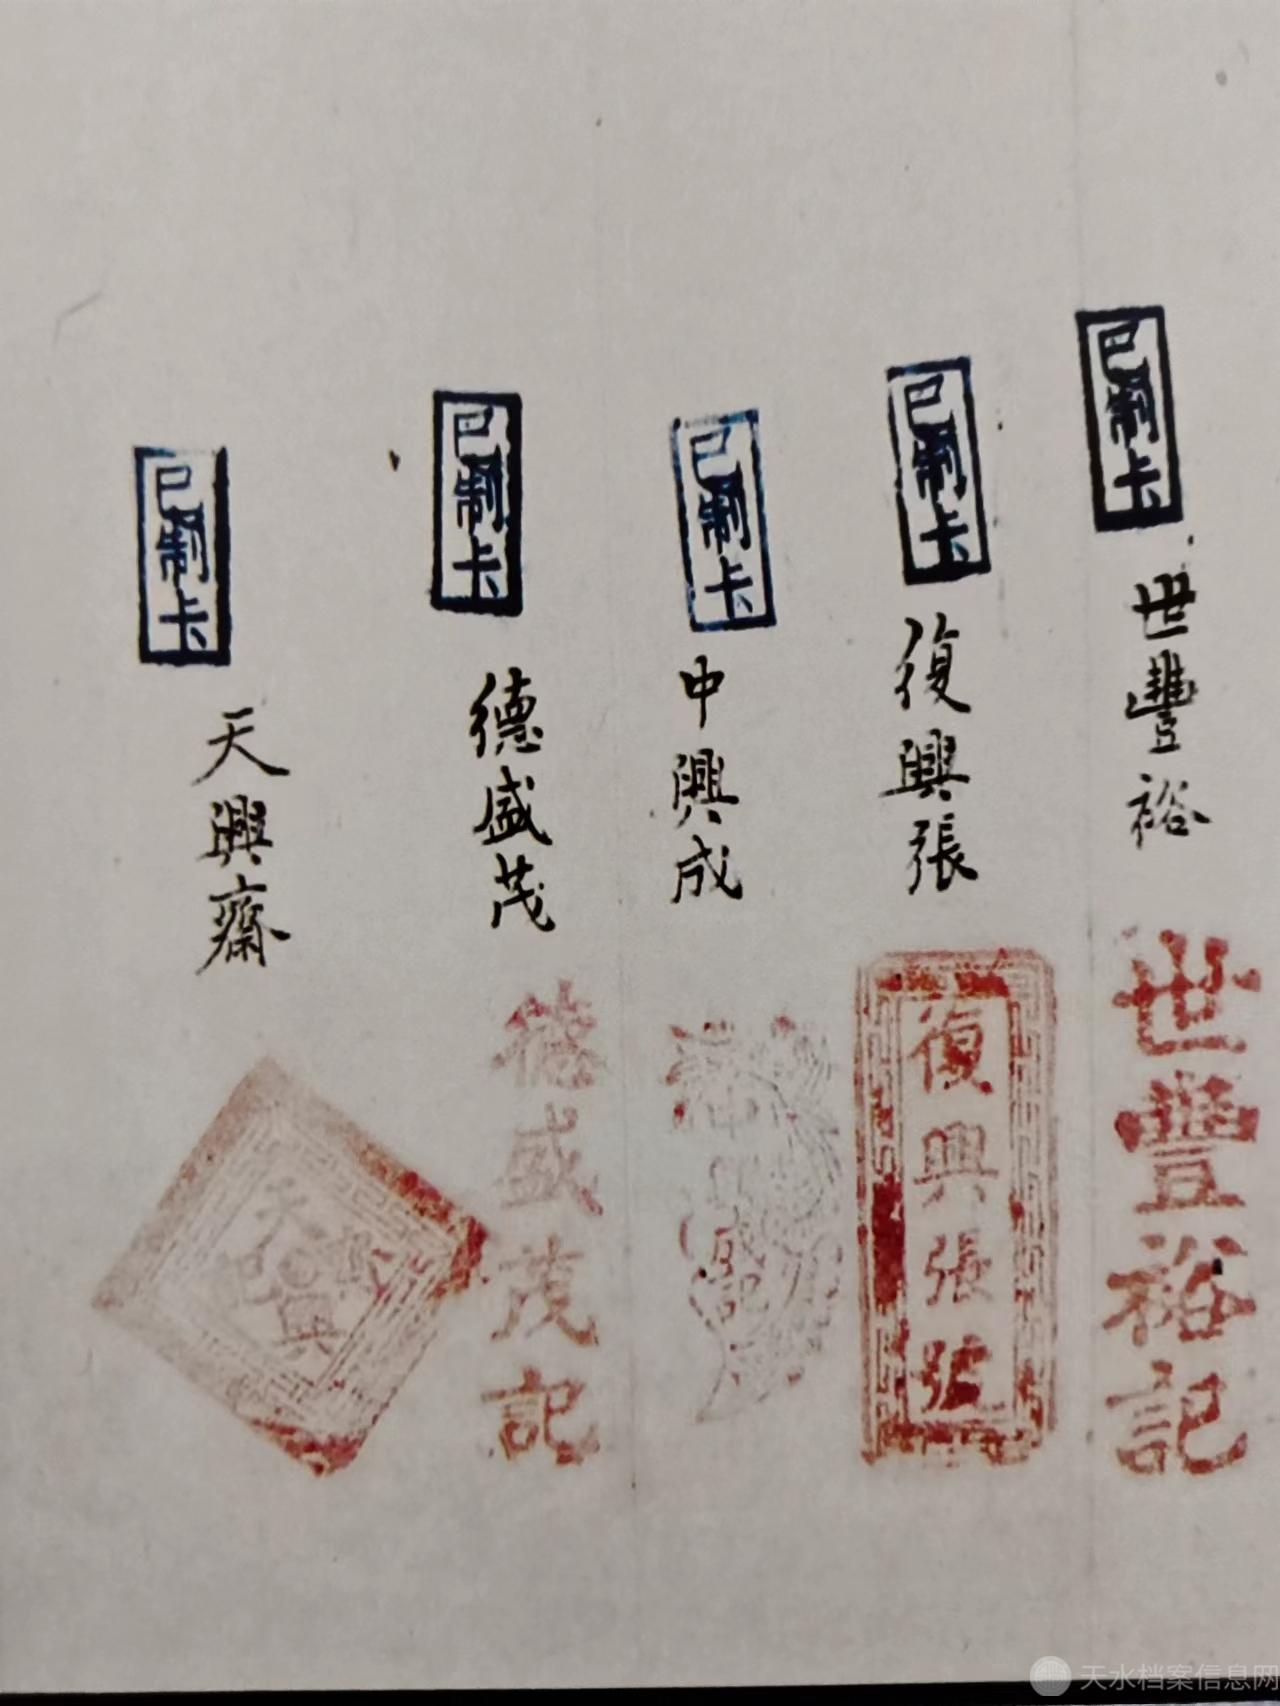 已制卡
世豐裕
世豐裕記
已制卡
復興張
復興張號
已制卡
中興成
記
已制卡
德盛茂
德盛茂記
已制卡
天興齋
天水档案信息网